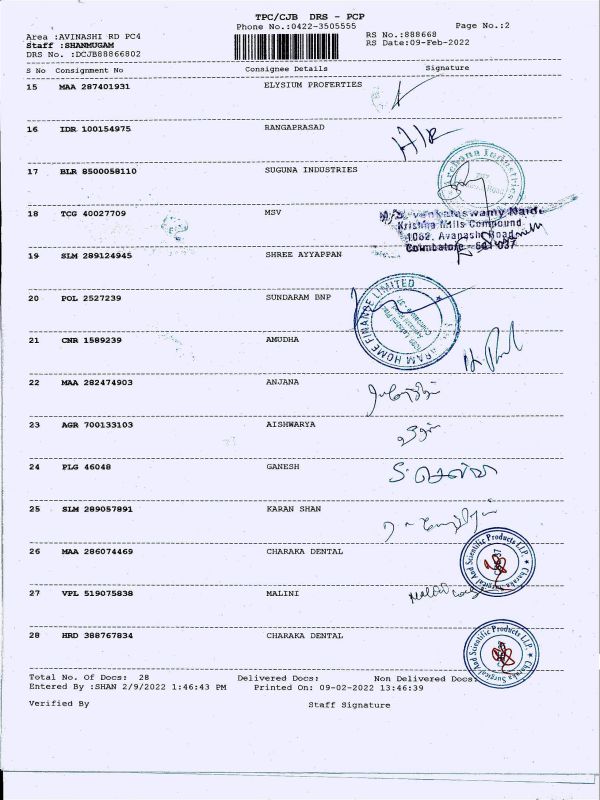 TPC/CJB DRS - PCP
Phone No.:0422-3505555 Page No.:2
Area :AVINASHI RD PC4 RS No.:888668
Staff :SHANMUGAM RS Date:09-Feb-2022
DRS No. :DCJB88866802
S No Consignment No Consignee Details Signature
15 MAA 287401931 ELYSIUM PROFERTIES
16 IDR 100154975 RANGAPRASAD
17 BLR 8500058110 SUGUNA INDUSTRIES
Archana Industries
18 TCG 40027709 MSV
Venkataswamy Naidu
Krishna Mills Compound
1062, Avanashi Road
Coimbatore - 641 037
19 SLM 289124945 SHREE AYYAPPAN
20 POL 2527239 SUNDARAM BNP
HOME FINANCE LIMITED
21 CNR 1589239 AMUDHA
22 MAA 282474903 ANJANA
23 AGR 700133103 AISHWARYA
24 PLG 46048 GANESH
25 SLM 289057891 KARAN SHAN
26 MAA 286074469 CHARAKA DENTAL
Charaka Surgical And Scientific Products LLP.
27 VPL 519075838 MALINI
28 HRD 388767834 CHARAKA DENTAL
Charaka Surgical And Scientific Products LLP.
Total No. Of Docs: 28 Delivered Docs: Non Delivered Docs:
Entered By :SHAN 2/9/2022 1:46:43 PM Printed On: 09-02-2022 13:46:39
Verified By Staff Signature